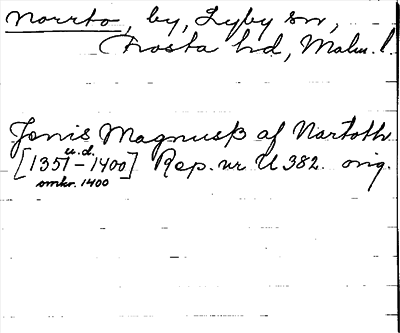 Norrto, by, Lyby sn,
Frosta hd, Malm. l.
Jenis Magnusß af Nartoth
u.d.
[1351-1400] Rep. nr U 382. orig.
omkr. 1400